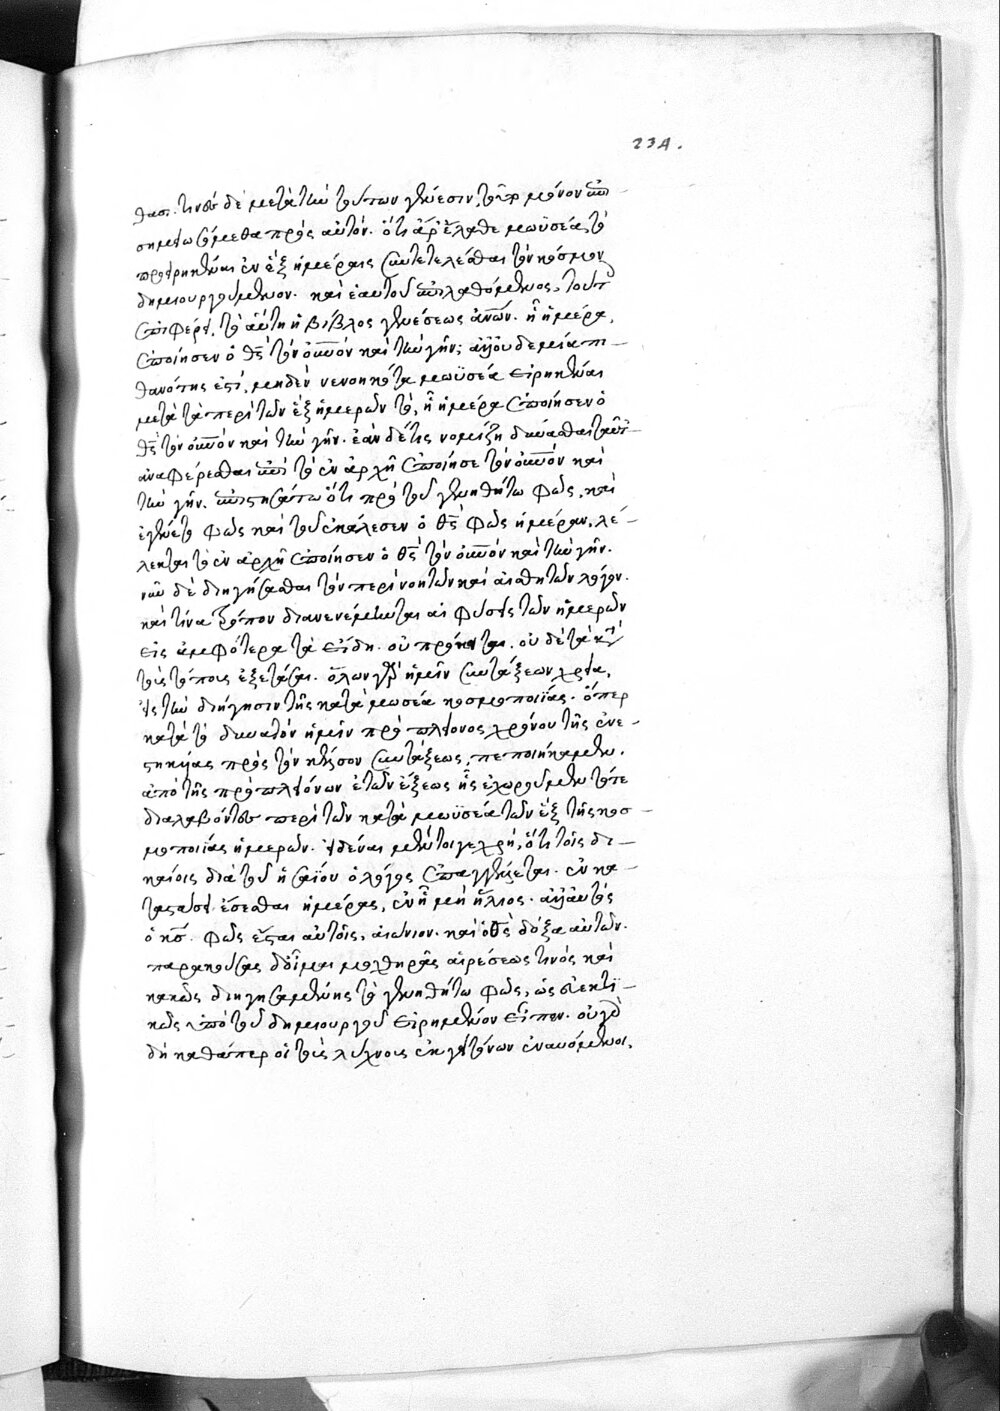 234.
θασι. τινὰ δὲ μετὰ τὴν τούτων γένεσιν, τοῦτο μόνον ἐπι–
σημειωσόμεθα πρὸς αὐτόν. ὅτι ἄρ' ἔλαθε μωϋσέα, τὸ
προειρηκέναι ἐν ἓξ ἡμέραις συντετελέσθαι τὸν κόσμον
δημιουργούμενον. καὶ ἑαυτοῦ ἐπιλαθόμενος, τούτοις
ἐπιφέρει, τὸ αὕτη ἡ βίβλος γενέσεως ἀνων. ᾗ ἡμέρᾳ,
ἐποίησεν ὁ θς τὸν οὐνον καὶ τὴν γῆν; ἀλλ' οὐδεμία πι–
θανότης ἐστί, μηδὲν νενοηκότα μωϋσέα εἰρηκέναι
μετὰ τὰ περὶ τῶν ἓξ ἡμερῶν τό, ᾗ ἡμέρᾳ ἐποίησεν ὁ
θς τὸν οὐνον καὶ τὴν γῆν. ἐὰν δέ τις νομίζῃ δύνασθαι ταῦτ'
ἀναφέρεσθαι ἐπὶ τὸ ἐν ἀρχῇ ἐποίησε τὸν οὐνον καὶ
τὴν γῆν. ἐπιστησάτω ὅτι πρὸ τοῦ γενηθήτω φῶς, καὶ
ἐγένετο φῶς καὶ τοῦ ἐκάλεσεν ὁ θς φῶς ἡμέραν, λέ–
λεκται τὸ ἐν ἀρχῇ ἐποίησεν ὁ θς τὸν οὐνον καὶ τὴν γῆν.
νῦν δὲ διηγήσασθαι τὸν περὶ νοητῶν καὶ αἰσθητῶν λόγον.
καὶ τίνα τρόπον διανενέμηνται αἱ φύσεις τῶν ἡμερῶν
εἰς ἀμφότερα τὰ εἴδη. οὐ πρόκειται. οὐδὲ τὰ κατὰ
τοὺς τόπους ἐξετάσαι. ὅλων γὰρ ἡμῖν συντάξεων χρεία,
εἰς τὴν διήγησιν τῆς κατὰ μωσέα κοσμοποιΐας. ὅπερ
κατὰ τὸ δυνατὸν ἡμῖν πρὸ πλείονος χρόνου τῆς ἐνε–
στηκυίας πρὸς τὸν κέλσον συντάξεως, πεποιήκαμεν.
ἀπὸ τῆς πρὸ πλειόνων ἐτῶν ἕξεως ἧς ἐχωροῦμεν τότε
διαλαβόντες περὶ τῶν κατὰ μωϋσέα τῶν ἓξ τῆς κοσ–
μοποιΐας ἡμερῶν. εἰδέναι μέντοι γε χρή, ὅτι τοῖς δι–
καίοις διὰ τοῦ ἡσαΐου ὁ λόγος ἐπαγγέλλεται. ἐν κα–
ταστάσει ἔσεσθαι ἡμέρας, ἐν ᾗ μὴ ἥλιος. ἀλλ' αὐτὸς
ὁ κς. φῶς ἔσται αὐτοῖς, αἰώνιον. καὶ ὁ θς δόξα αὐτῶν.
παρακούσας δ' οἶμαι μοχθηρᾶς αἱρέσεως τινὸς καὶ
κακῶς διηγησαμένης τὸ γενηθήτω φῶς, ὡς εὐκτι–
κῶς ὑπὸ τοῦ δημιουργοῦ εἰρημένον εἶπεν. οὐ γὰρ
δὴ καθάπερ οἱ τοὺς λύχνους ἐκ γειτόνων ἐναυόμενοι,